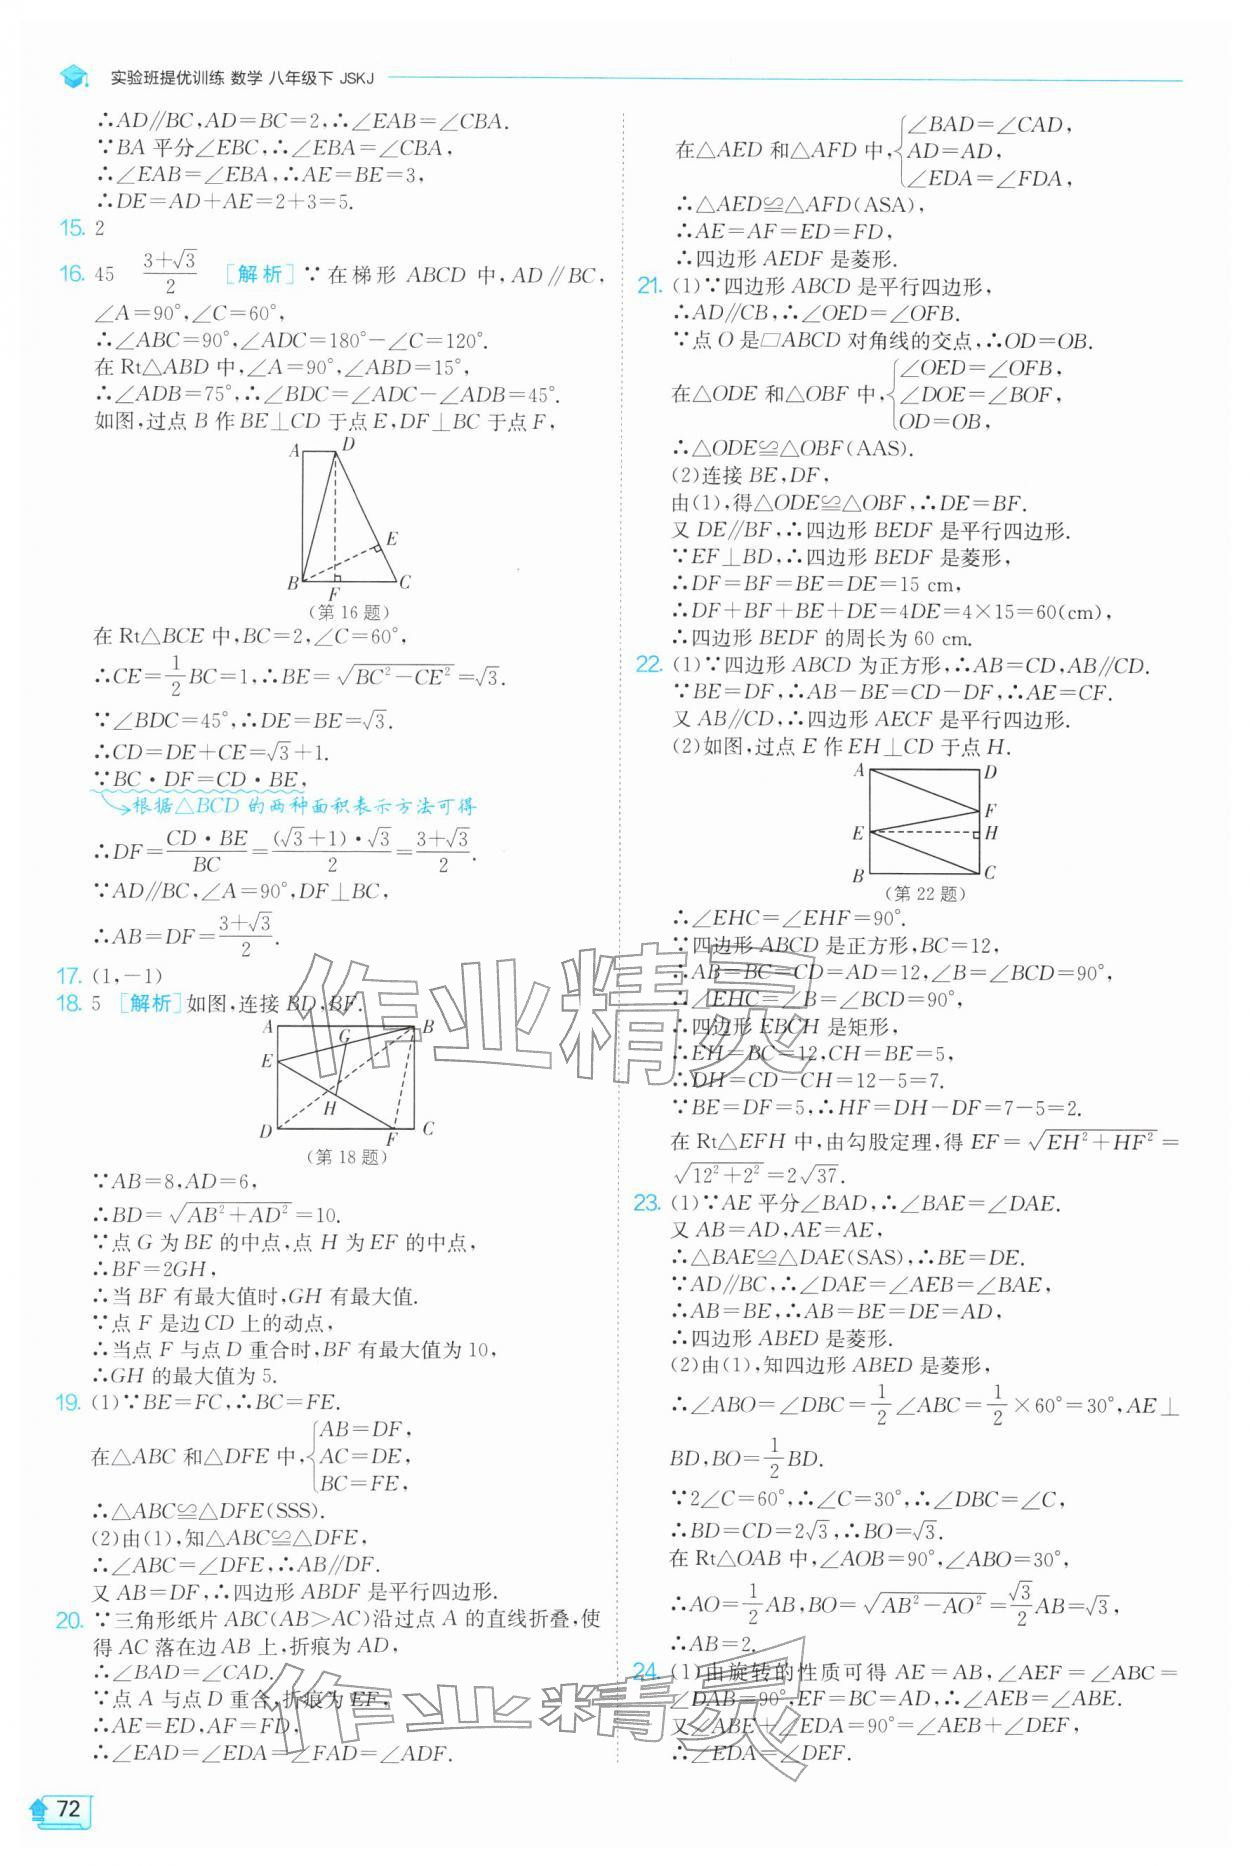 实验班提优训练 数学 八年级下 JSKJ
∴AD∥BC,AD=BC=2,∴∠EAB=∠CBA.
∵BA 平分∠EBC,∴∠EBA=∠CBA,
∴∠EAB=∠EBA,∴AE=BE=3,
∴DE=AD+AE=2+3=5.
15. 2
16. 45 (3+√3)/2 [解析]∵在梯形 ABCD 中,AD∥BC,
∠A=90°,∠C=60°,
∴∠ABC=90°,∠ADC=180°-∠C=120°.
在 Rt△ABD 中,∠A=90°,∠ABD=15°,
∴∠ADB=75°,∴∠BDC=∠ADC-∠ADB=45°.
如图,过点 B 作 BE⊥CD 于点 E,DF⊥BC 于点 F,
A D
E
B F C
(第 16 题)
在 Rt△BCE 中,BC=2,∠C=60°,
∴CE=1/2 BC=1,∴BE=√(BC²-CE²)=√3.
∵∠BDC=45°,∴DE=BE=√3.
∴CD=DE+CE=√3+1.
∵BC·DF=CD·BE,
根据△BCD 的两种面积表示方法可得
∴DF=(CD·BE)/BC=((√3+1)·√3)/2=(3+√3)/2.
∵AD∥BC,∠A=90°,DF⊥BC,
∴AB=DF=(3+√3)/2.
17. (1,-1)
18. 5 [解析]如图,连接 BD,BF.
A B
G
E
H
D F C
(第 18 题)
∵AB=8,AD=6,
∴BD=√(AB²+AD²)=10.
∵点 G 为 BE 的中点,点 H 为 EF 的中点,
∴BF=2GH,
∴当 BF 有最大值时,GH 有最大值.
∵点 F 是边 CD 上的动点,
∴当点 F 与点 D 重合时,BF 有最大值为 10,
∴GH 的最大值为 5.
19. (1)∵BE=FC,∴BC=FE.
在△ABC 和△DFE 中,{AB=DF,
AC=DE,
BC=FE,
∴△ABC≌△DFE(SSS).
(2)由(1),知△ABC≌△DFE,
∴∠ABC=∠DFE,∴AB∥DF.
又 AB=DF,∴四边形 ABDF 是平行四边形.
20. ∵三角形纸片 ABC(AB>AC)沿过点 A 的直线折叠,使
得 AC 落在边 AB 上,折痕为 AD,
∴∠BAD=∠CAD.
∵点 A 与点 D 重合,折痕为 EF,
∴AE=ED,AF=FD,
∴∠EAD=∠EDA=∠FAD=∠ADF.
72
在△AED 和△AFD 中,{∠BAD=∠CAD,
AD=AD,
∠EDA=∠FDA,
∴△AED≌△AFD(ASA),
∴AE=AF=ED=FD,
∴四边形 AEDF 是菱形.
21. (1)∵四边形 ABCD 是平行四边形,
∴AD∥CB,∴∠OED=∠OFB.
∵点 O 是□ABCD 对角线的交点,∴OD=OB.
在△ODE 和△OBF 中,{∠OED=∠OFB,
∠DOE=∠BOF,
OD=OB,
∴△ODE≌△OBF(AAS).
(2)连接 BE,DF,
由(1),得△ODE≌△OBF,∴DE=BF.
又 DE∥BF,∴四边形 BEDF 是平行四边形.
∵EF⊥BD,∴四边形 BEDF 是菱形,
∴DF=BF=BE=DE=15 cm,
∴DF+BF+BE+DE=4DE=4×15=60(cm),
∴四边形 BEDF 的周长为 60 cm.
22. (1)∵四边形 ABCD 为正方形,∴AB=CD,AB∥CD.
∵BE=DF,∴AB-BE=CD-DF,∴AE=CF.
又 AB∥CD,∴四边形 AECF 是平行四边形.
(2)如图,过点 E 作 EH⊥CD 于点 H.
A D
F
E H
B C
(第 22 题)
∴∠EHC=∠EHF=90°.
∵四边形 ABCD 是正方形,BC=12,
∴AB=BC=CD=AD=12,∠B=∠BCD=90°,
∴∠EHC=∠B=∠BCD=90°,
∴四边形 EBCH 是矩形,
∴EH=BC=12,CH=BE=5,
∴DH=CD-CH=12-5=7.
∵BE=DF=5,∴HF=DH-DF=7-5=2.
在 Rt△EFH 中,由勾股定理,得 EF=√(EH²+HF²)=
√(12²+2²)=2√37.
23. (1)∵AE 平分∠BAD,∴∠BAE=∠DAE.
又 AB=AD,AE=AE,
∴△BAE≌△DAE(SAS),∴BE=DE.
∵AD∥BC,∴∠DAE=∠AEB=∠BAE,
∴AB=BE,∴AB=BE=DE=AD,
∴四边形 ABED 是菱形.
(2)由(1),知四边形 ABED 是菱形,
∴∠ABO=∠DBC=1/2∠ABC=1/2×60°=30°,AE⊥
BD,BO=1/2 BD.
∵2∠C=60°,∴∠C=30°,∴∠DBC=∠C,
∴BD=CD=2√3,∴BO=√3.
在 Rt△OAB 中,∠AOB=90°,∠ABO=30°,
∴AO=1/2 AB,BO=√(AB²-AO²)=√3/2 AB=√3,
∴AB=2.
24. (1)由旋转的性质可得 AE=AB,∠AEF=∠ABC=
∠DAB=90°,EF=BC=AD,∴∠AEB=∠ABE.
又∠ABE+∠EDA=90°=∠AEB+∠DEF,
∴∠EDA=∠DEF.
作业精灵
作业精灵